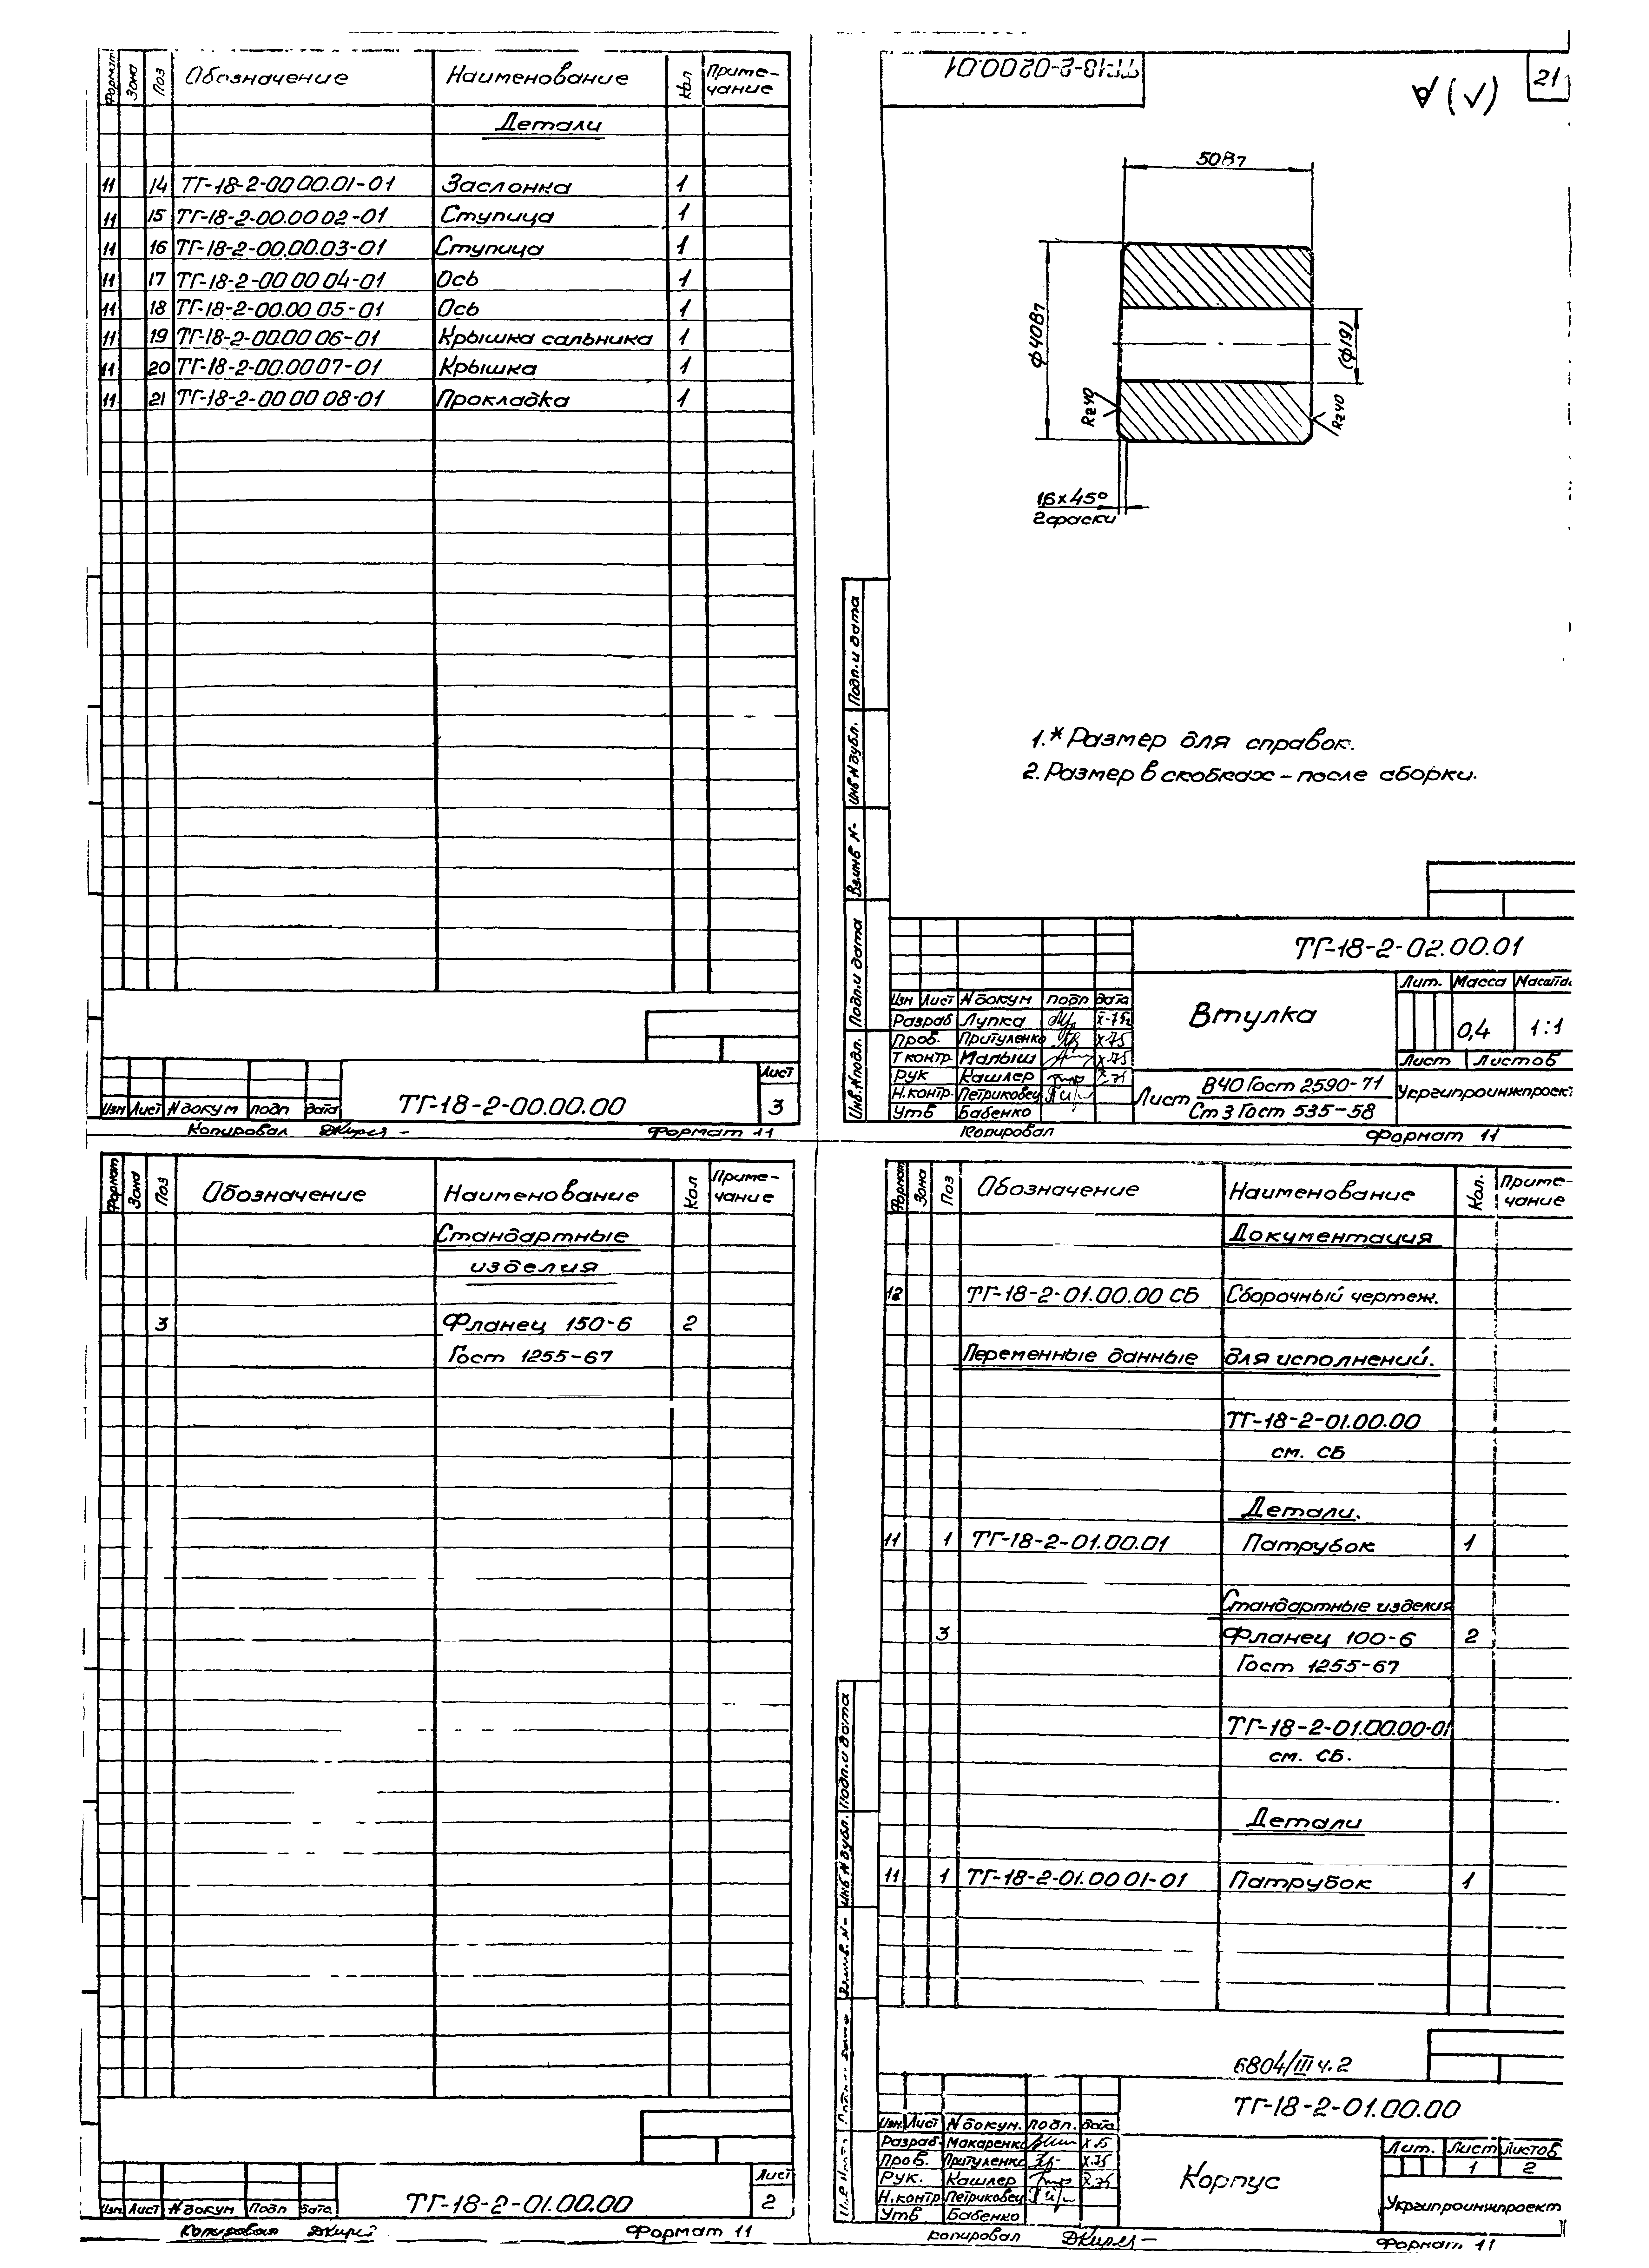 Формат Зона Поз Обозначение Наименование Кол Приме-
чание
Детали
11 14 ТГ-18-2-00 00.01-01 Заслонка 1
11 15 ТГ-18-2-00.00 02-01 Ступица 1
11 16 ТГ-18-2-00.00.03-01 Ступица 1
11 17 ТГ-18-2-00 00 04-01 Ось 1
11 18 ТГ-18-2-00.00 05-01 Ось 1
11 19 ТГ-18-2-00.00 06-01 Крышка сальника 1
11 20 ТГ-18-2-00.00 07-01 Крышка 1
11 21 ТГ-18-2-00 00 08-01 Прокладка 1
Изм Лист N докум подп дата
ТГ-18-2-00.00.00
Лист
3
Копировал
Формат 11
ТГ-18-2-02 00.01
21
50В7
ф40В7
(ф19)
Rz40
Rz40
1,6×45°
2 фаски
1.* Размер для справок.
2. Размер в скобках - после сборки.
Подп. и дата
Инв N дубл.
Вз.инв N-
Подп. и дата
Инв. N подл.
ТГ-18-2-02.00.01
Изм Лист N докум подп дата
Разраб Лупка X-75г
Пров. Притуленко X-75
Т контр Малыш X-75
Рук Кашлер X-75
Н.контр. Петриковец
Утв Бабенко
Втулка
Лит. Масса
0,4 1:1
Лист Листов
Лист В40 Гост 2590-71
Ст 3 Гост 535-58
Укргипроинжпроект
Копировал
Формат 11
Формат Зона Поз Обозначение Наименование Кол Приме-
чание
Стандартные
изделия
3 Фланец 150-6 2
Гост 1255-67
Изм Лист N докум Подп Дата
ТГ-18-2-01.00.00
Лист
2
Копировал
Формат 11
Формат Зона Поз Обозначение Наименование Кол. Приме-
чание
Документация
12 ТГ-18-2-01.00.00 СБ Сборочный чертеж.
Переменные данные для исполнений.
ТГ-18-2-01.00.00
см. СБ
Детали.
11 1 ТГ-18-2-01.00.01 Патрубок 1
Стандартные изделия
3 Фланец 100-6 2
Гост 1255-67
ТГ-18-2-01.00.00-01
см. СБ.
Детали
11 1 ТГ-18-2-01.00 01-01 Патрубок 1
Подп. и дата
Инв N дубл.
Вз.инв. N-
6804/III ч.2
ТГ-18-2-01.00.00
Изм. Лист N докум. подп. дата
Разраб. Макаренко X 75
Пров. Притуленко X.75
Рук. Кашлер X.75
Н.контр Петриковец
Утв Бабенко
Корпус
Лит. Лист Листов
1 2
Укргипроинжпроект
копировал
Формат 11